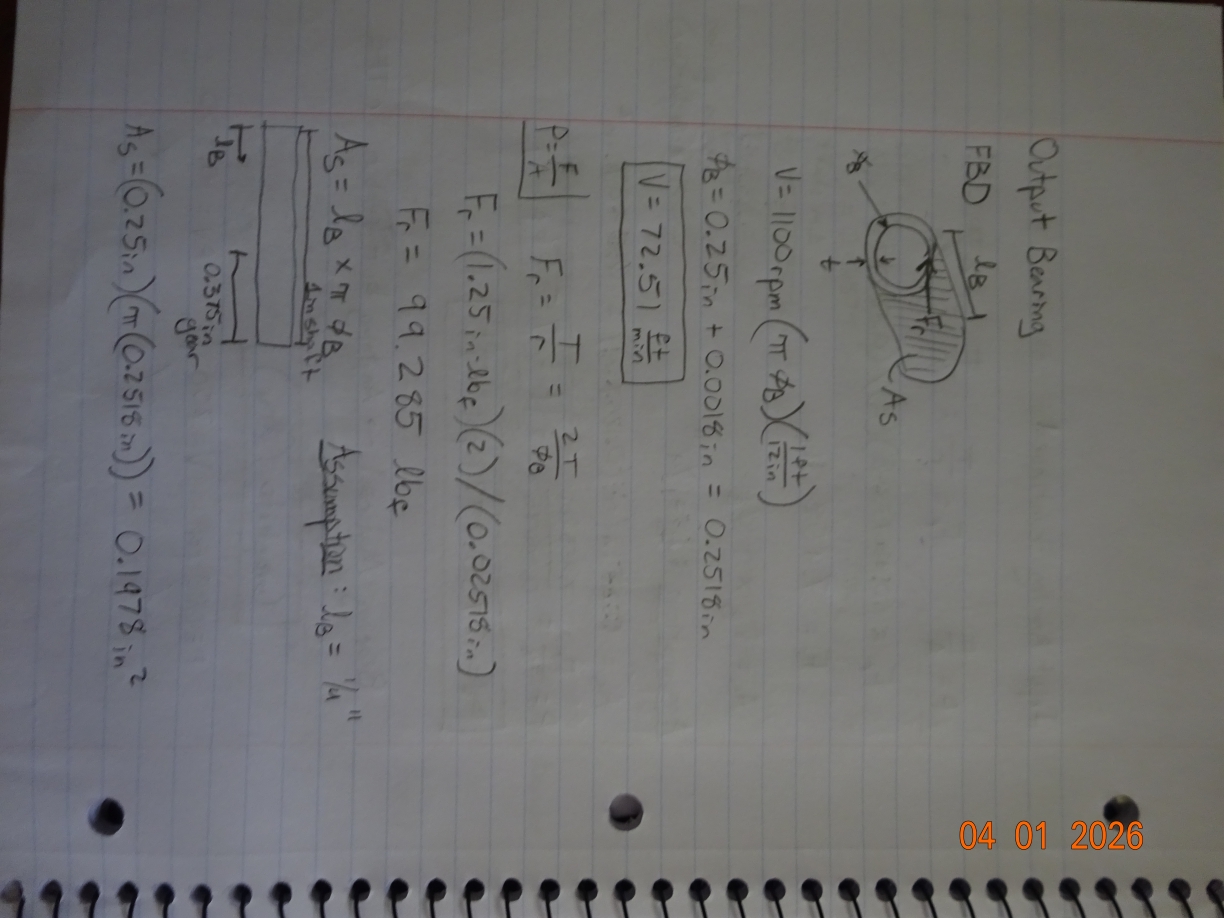 Output Bearing
FBD
l_B
F_r
A_s
ϕ_B
t
V = 1100rpm (π ϕ_B)(1ft/12in)
ϕ_B = 0.25in + 0.0018in = 0.2518in
V = 72.51 ft/min
P = F/A F_r = T/r = 2T/ϕ_B
F_r = (1.25in-lb_f)(2)/(0.02518in)
F_r = 99.285 lb_f
A_s = l_B × π ϕ_B Assumption: l_B = 1/4"
1in shaft
l_B 0.375in
gear
A_s = (0.25in)(π(0.2518in)) = 0.1978in²
04 01 2026